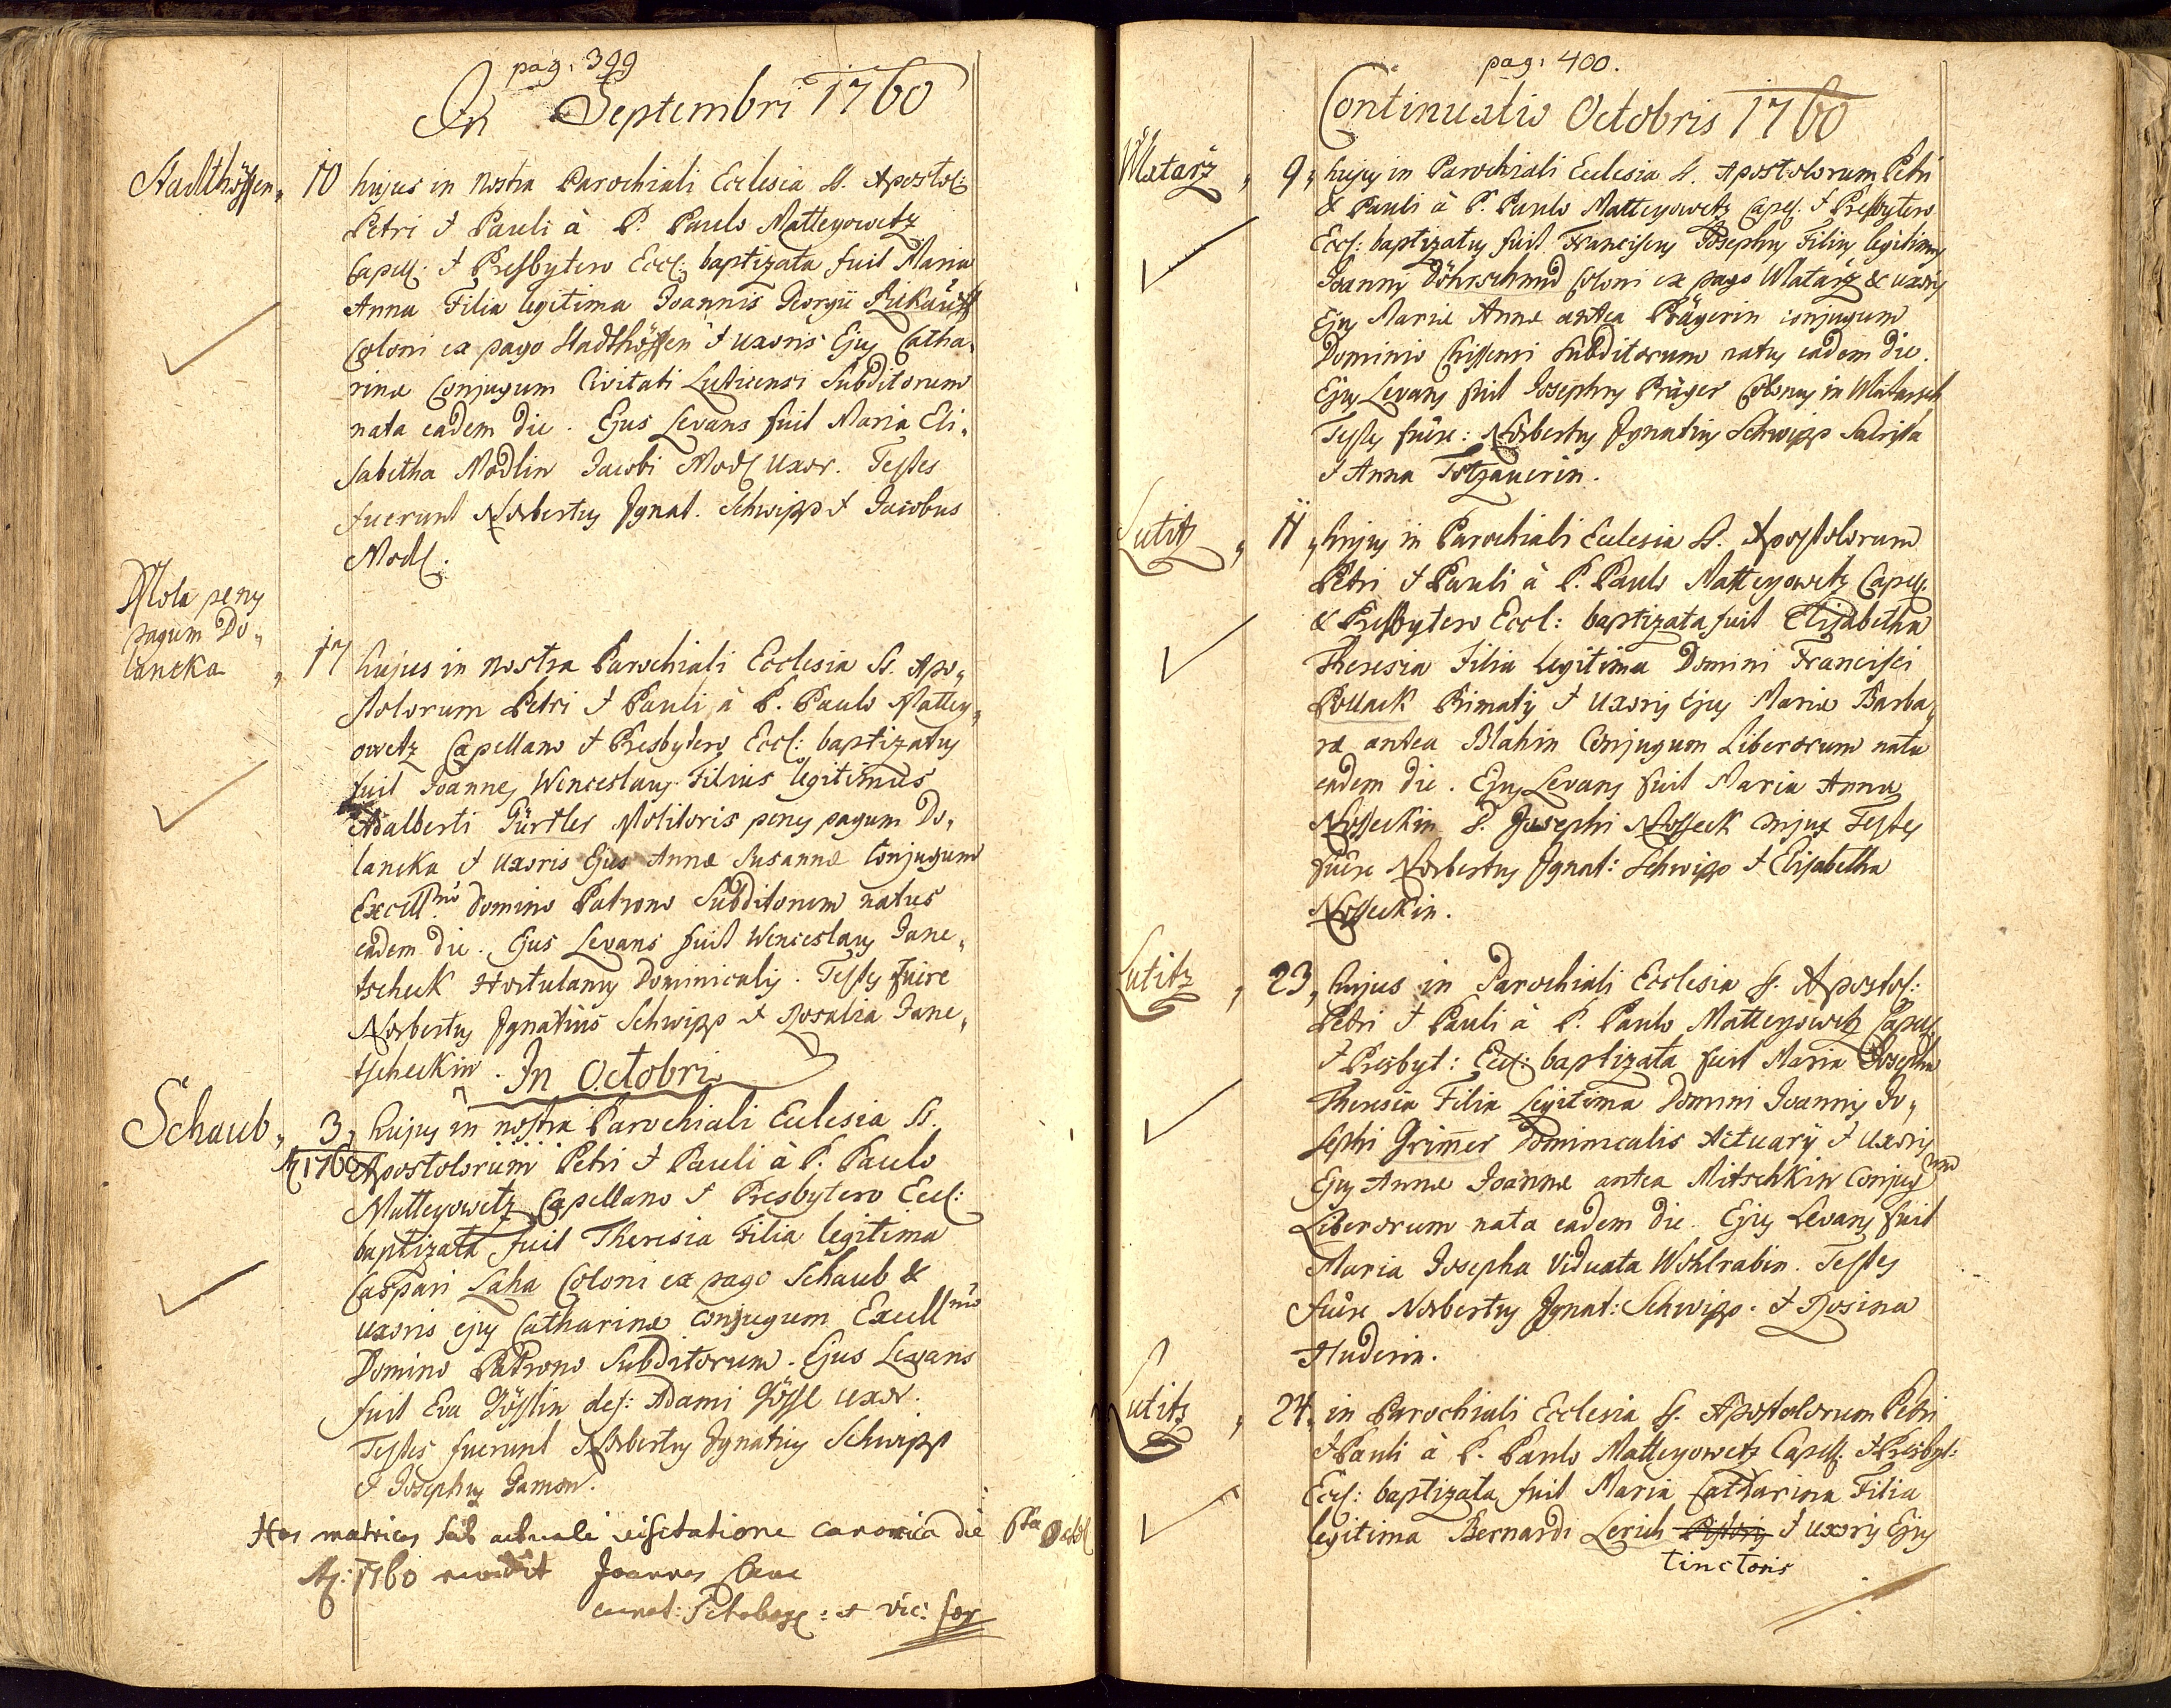 pag. 399
In Septembri 1760
Stadthöffen 10 hujus in nostra Parochiali Ecclesia SS. Apostol:
Petri & Pauli à P. Paulo Matteyowetz
Capell. & Presbytero Eccl: baptizata fuit Maria
Anna Filia legitima Joannis Georgii
Coloni ex pago Stadthöffen & uxoris Ejus Catha,
rinæ Conjugum Civitati Luticensi Subditorum
nata eadem die. Ejus Levans fuit Maria Eli,
sabetha Modlin Jacobi Modl uxor. Testes
fuerunt Norbertus Ignat. Schwipp & Jacobus
Modl.
Mola penes
pagum Do,
lancka 17 hujus in nostra Parochiali Ecclesia SS. Apo,
stolorum Petri & Pauli à P. Paulo Mattey,
owetz Capellano & Presbytero Eccl: baptizatus
fuit Joannes Wenceslaus Filius legitimus
Adalberti Gürtler Molitoris penes pagum Do,
lancka & uxoris Ejus Annæ Susannæ Conjugum
Excell mo Domino Patrono Subditorum natus
eadem die. Ejus Levans fuit Wenceslaus Jane,
tscheck Hortulanus Dominicalis. Testes fuere
Norbertus Ignatius Schwipp & Rosalia Jane,
tscheckin. In Octobri
Schaub 3, hujus in nostra Parochiali Ecclesia SS.
A 1760 Apostolorum Petri & Pauli à P. Paulo
Matteyowetz Capellano & Presbytero Eccl:
baptizata fuit Theresia Filia legitima
Caspari Laha Coloni ex pago Schaub &
uxoris ejus Catharinæ conjugum Excell mo
Domino Patrono Subditorum. Ejus Levans
fuit Eva Gösslin def: Adami Gössl uxor.
Testes fuerunt Norbertus Ignatius Schwipp
& Josephus Gamon.
Has matrices sub actuali visitatione canonica die 6ta Octob
A: 1760 revidit Joannes
vic: for
pag: 400.
Continuatio Octobris 1760
Wlatarz 9, hujus in Parochiali Ecclesia SS. Apostolorum Petri
& Pauli à P. Paulo Matteyowetz Capel. & Presbytero
Eccl: baptizatus fuit Franciscus Josephus Filius legitimus
Joannis Döhrschmid Coloni ex pago Wlatarz & uxoris
Ejus Mariæ Annæ antea Prägerin conjugum
Dominio Chissensi Subditorum natus eadem die.
Ejus Levans fuit Josephus Präger Colonus in Wlatarsch
Testes fuêre: Norbertus Ignatius Schwipp
& Anna Totzauerin.
Lutitz 11, hujus in Parochiali Ecclesia SS. Apostolorum
Petri & Pauli à P. Paulo Matteyowetz Capell.
& Presbytero Eccl: baptizata fuit Elisabetha
Theresia Filia Legitima Domini Francisci
Pollack Primatis & uxoris ejus Mariæ Barba,
ræ antea Blahin Conjugum Liberorum nata
eadem die. Ejus Levans fuit Maria Anna
Nosseckin D. Josephi Nosseck conjux Testes
fuêre Norbertus Ignat: Schwipp & Elisabetha
Nosseckin.
Lutitz 23, hujus in Parochiali Ecclesia SS. Apostol:
Petri & Pauli à P. Paulo Matteyowetz Capell.
& Presbyt: Eccl: baptizata fuit Maria Josepha
Theresia Filia Legitima Domini Joannis Jo,
sephi Grimer Dominicalis Actuarij & uxoris
Ejus Annæ Joannæ antea Mitschkin Conjugum
Liberorum nata eadem die. Ejus Levans fuit
Maria Josepha Viduata Wohlrabin. Testes
fuêre Norbertus Ignat: Schwipp. & Rosina
Huderin.
Lutitz 24, in Parochiali Ecclesia SS. Apostolorum Petri
& Pauli à P. Paulo Matteyowetz Capell. & Presbyt:
Eccl: baptizata fuit Maria Catharina Filia
legitima Bernardi Lerich Pistoris & uxoris Ejus
tinctoris